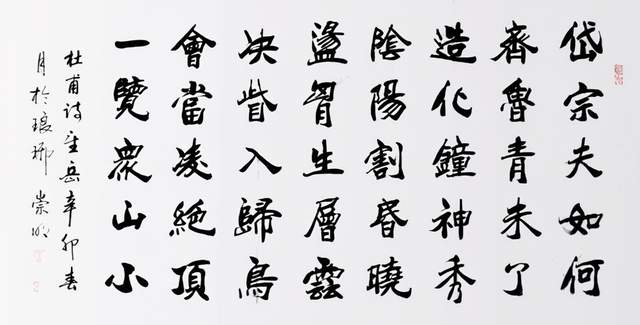 岱宗夫如何
齊魯青未了
造化鐘神秀
陰陽割昏曉
盪胷生層雲
決眥入歸鳥
會當凌絕頂
一覽衆山小
杜甫诗望岳辛卯春
月於琅琊 崇